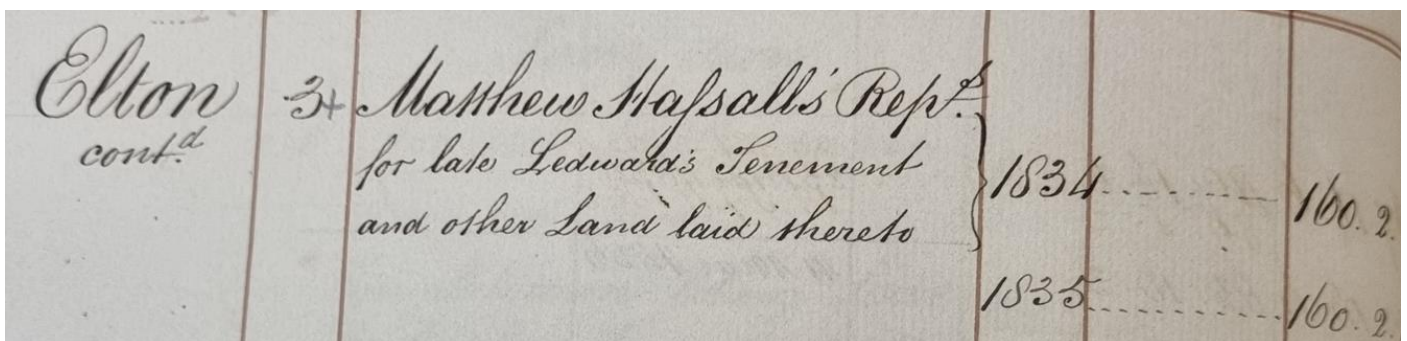 Elton 3+ Matthew Haſsall's Rep.s
cont.d for late Ledward's Tenement
and other Land laid thereto
1834 160. 2.
1835 160. 2.